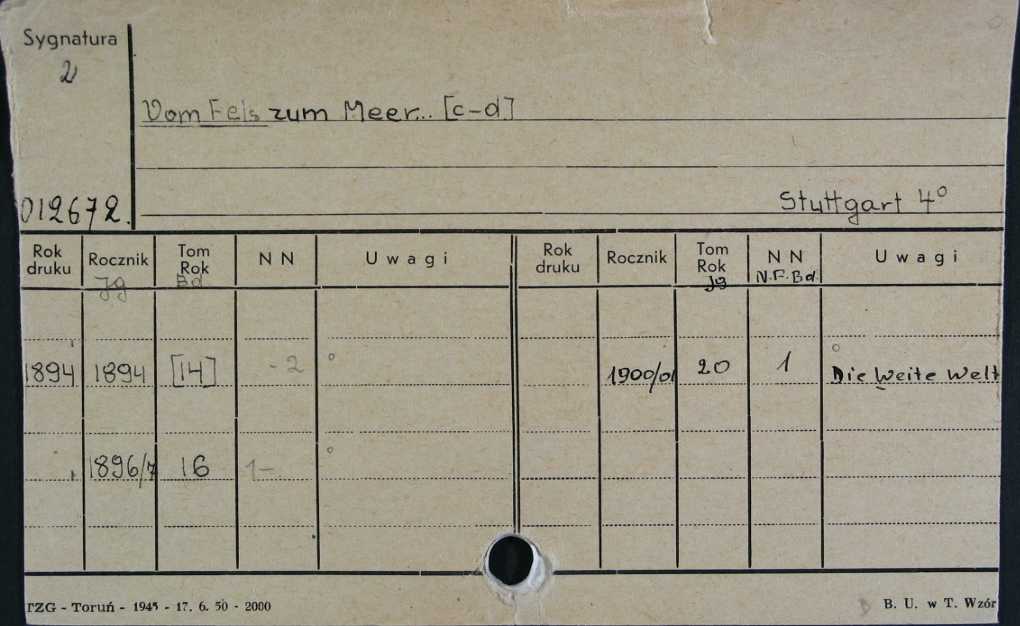 Sygnatura
2
Vom Fels zum Meer... [c-d]
012672.
Stuttgart 4°
Rok druku Rocznik Tom Rok N N Uwagi Rok druku Rocznik Tom Rok N N Uwagi
Jg Bd. Jg N.F.Bd.
1894 1894 [14] -2 ° 1900/01 20 1 ° Die weite Welt
1896/7 16 1- °
TZG - Toruń - 1945 - 17. 6. 50 - 2000
B. U. w T. Wzór